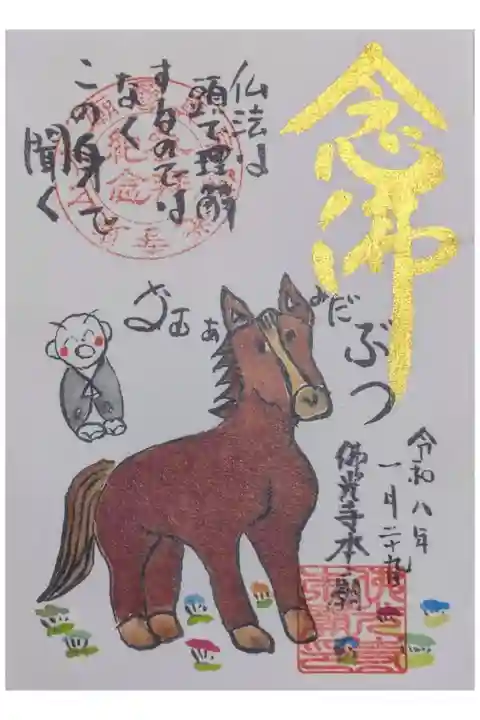 念佛
仏法は
頭で理解
するのでは
なく
この身で
聞く
なむあみだぶつ
令和八年
一月二十九
佛光寺本廟